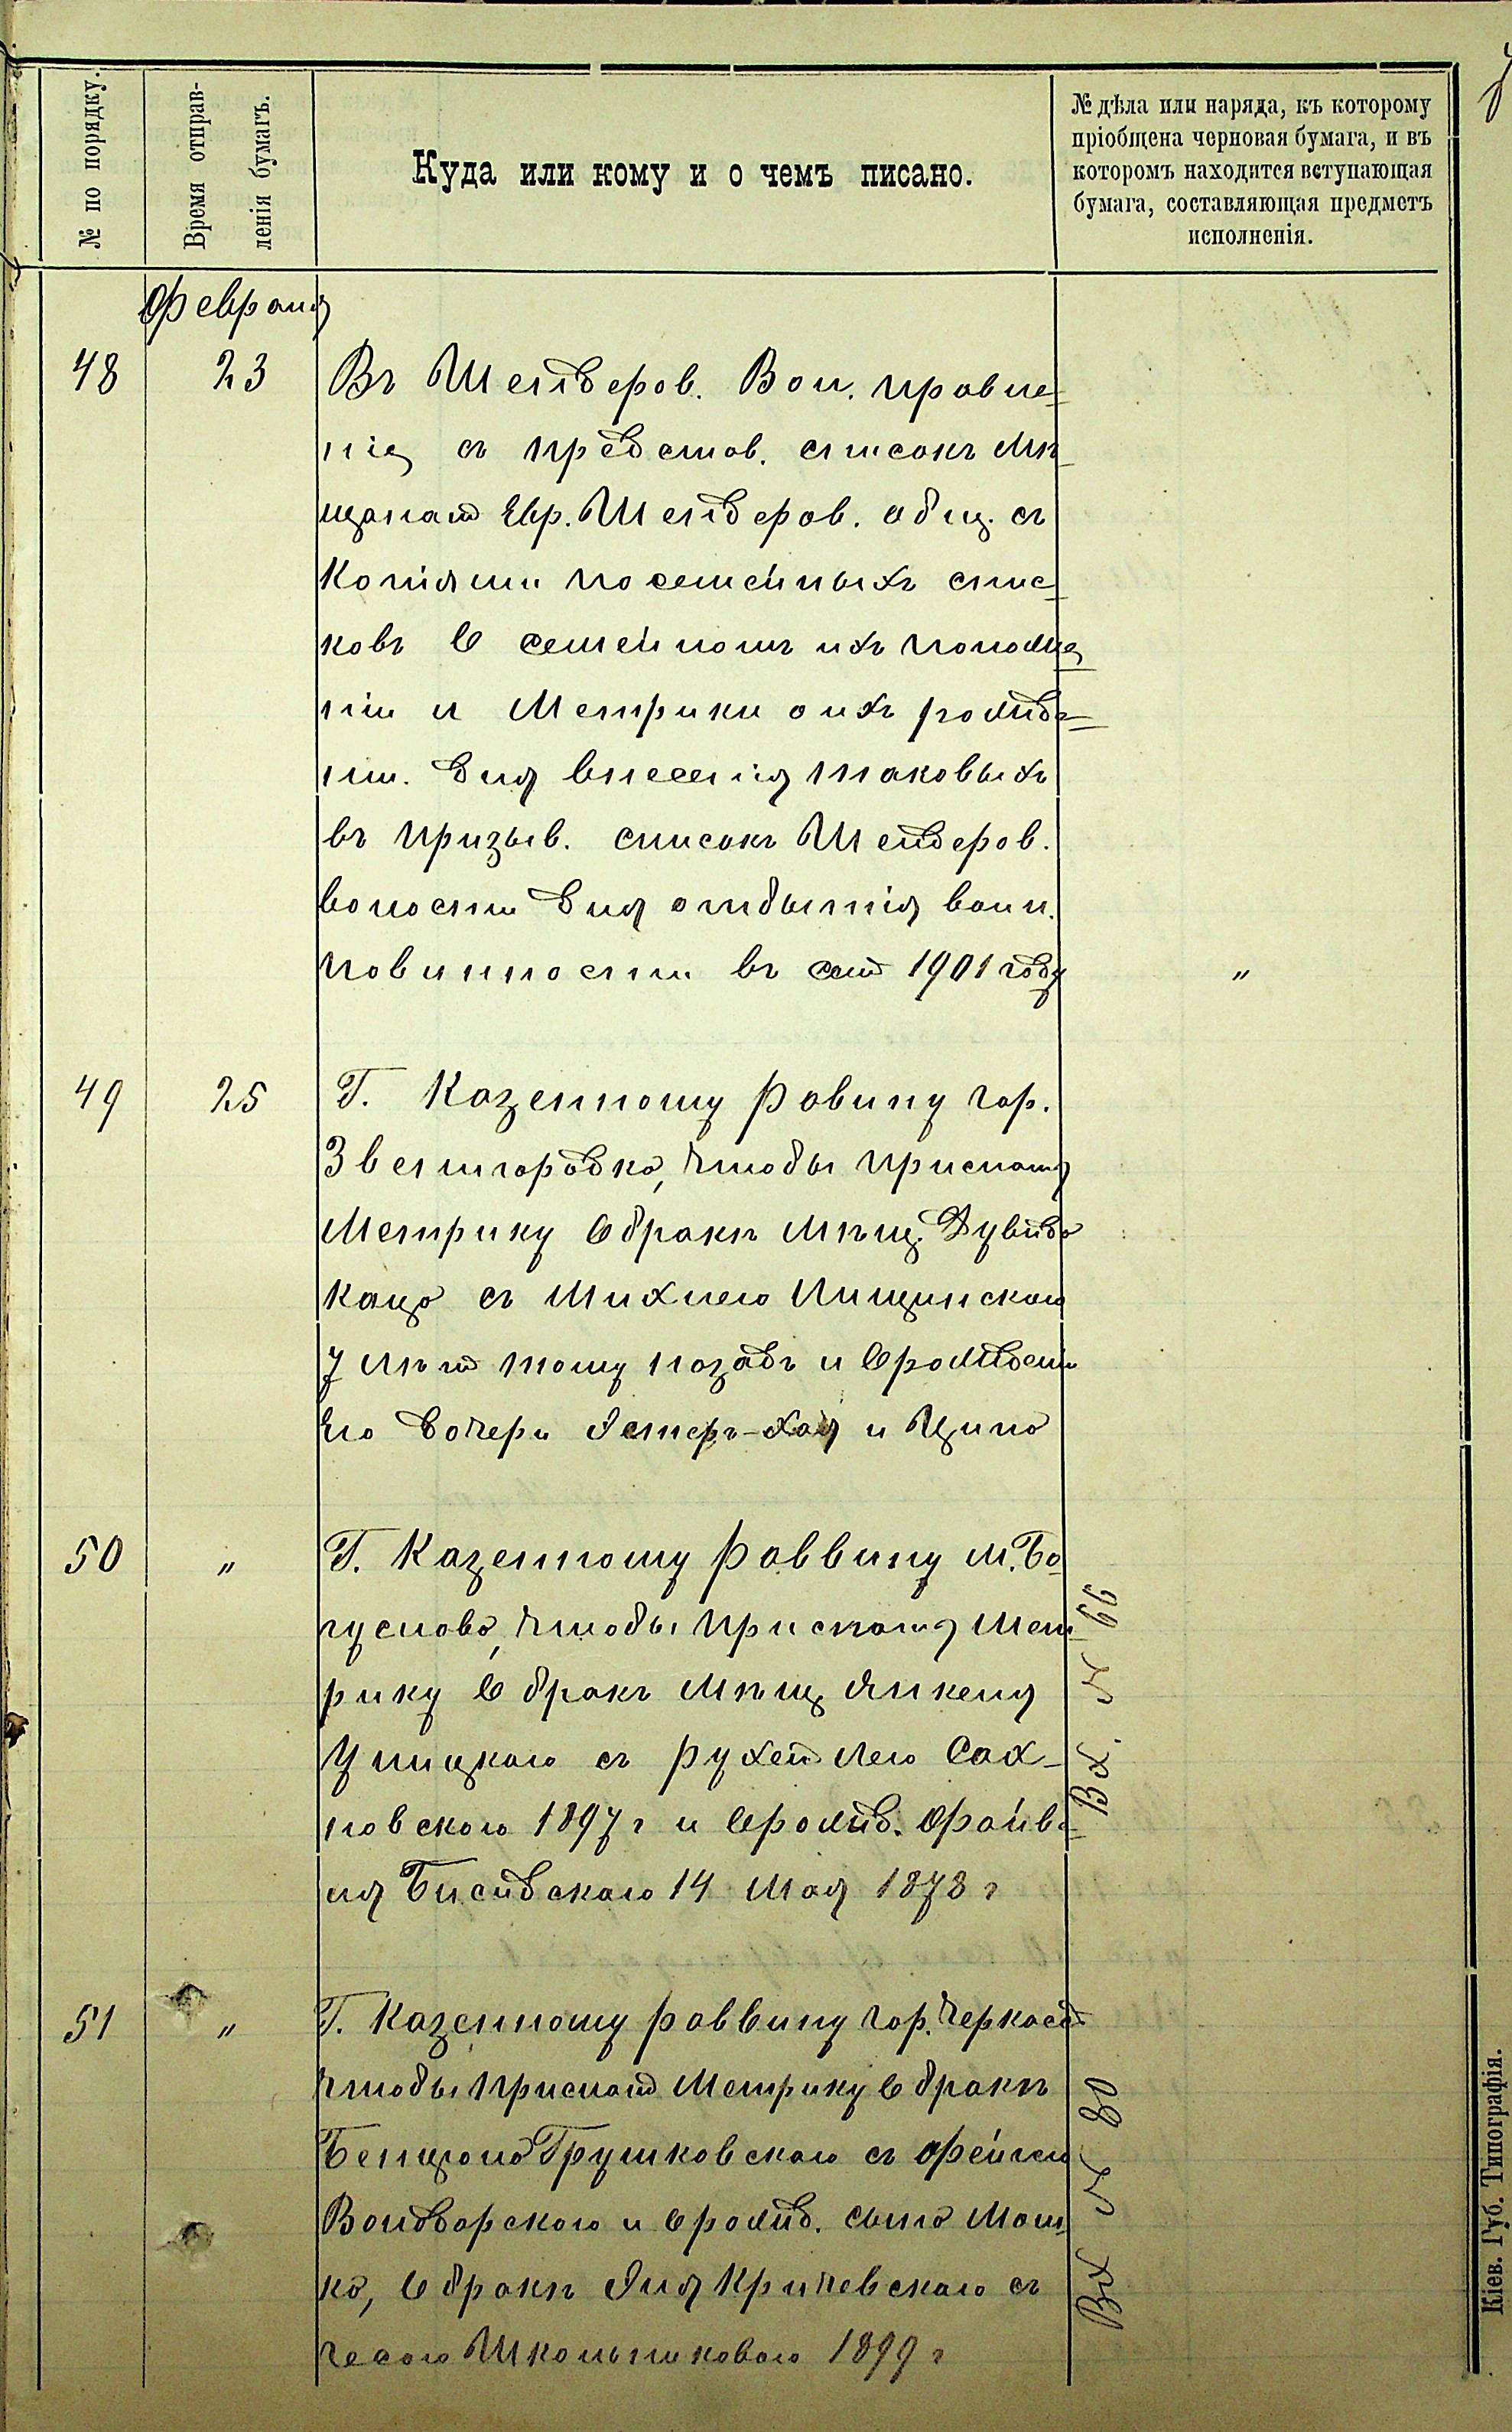 № по порядку.
Время отправ-
ленія бумагъ.
Куда или кому и о чемъ писано.
№ дѣла или наряда, къ которому
пріобщена черновая бумага, и въ
которомъ находится вступающая
бумага, составляющая предметъ
исполненія.
Февраля
48 23 Въ Шендеров. Вол. правле-
ніе съ представ. списокъ мѣ-
щанам Евр. Шендеров. общ. съ
копіями посемейныхъ спис-
ковъ о семейномъ ихъ положе-
ніи и Метрики о ихъ рожде-
ніи. для внесенія таковыхъ
въ призыв. списокъ Шендеров.
волости для отбытія воин.
повинности въ сем 1901 году "
49 25 Г. Казенному Равину гор.
Звенигородка, чтобы прислать
Метрику о бракѣ мѣщ. Дувида
Каца съ Михлею Пищинскою
7 лѣт тому назадъ и о рождении
его дочери Эстеръ-Хая и Ципа
50 " Г. Казенному Раввину м. Бо-
гуслава, чтобы прислать мет
рику о бракѣ мѣщ Янкеля
Улицкаго съ Рухей Леею Сах-
новскаго 1897 г и о рожд. Файве-
ля 14 Мая 1878 г
Вх. № 66
51 " Г. Казенному раввину гор. Черкасъ
чтобы прислат Метрику о бракѣ
Бенціона Грушковскаго съ Фейгею
Волдварскаго и о рожд. сына Мош
ка, о бракѣ Эля Кричевскаго съ
Школьниковою 1899 г
Вх № 80
Кіев. Губ. Типографія.